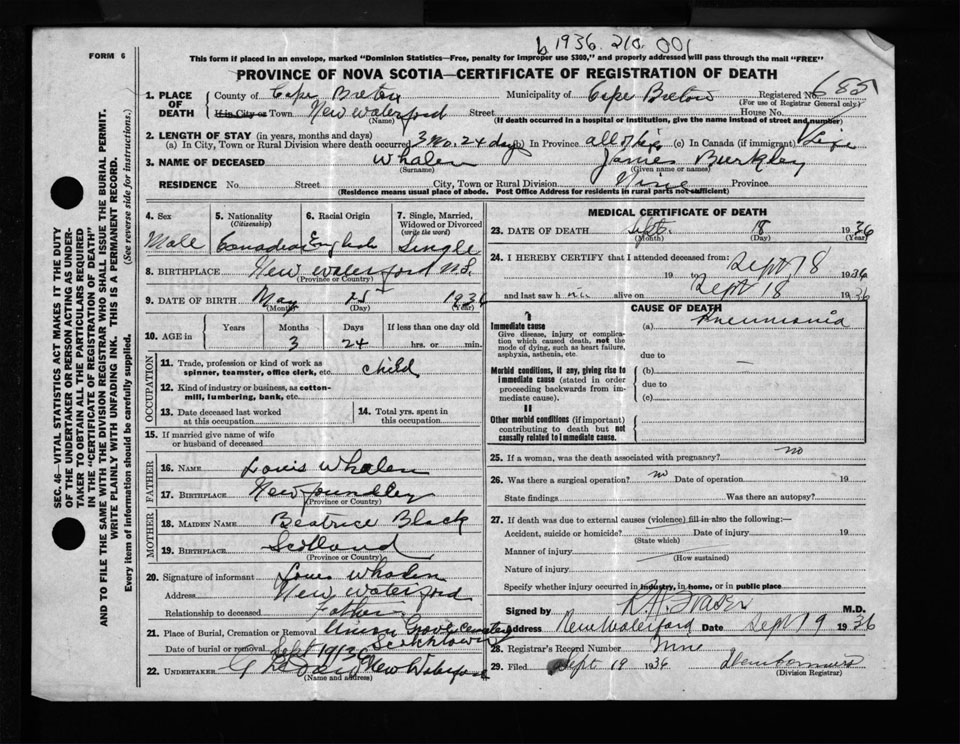 FORM 6
1936. 210. 001
This form if placed in an envelope, marked "Dominion Statistics—Free, penalty for improper use $300," and properly addressed will pass through the mail "FREE"
PROVINCE OF NOVA SCOTIA—CERTIFICATE OF REGISTRATION OF DEATH
1. PLACE OF DEATH County of Cape Breton Municipality of Cape Breton Registered No. 685
(For use of Registrar General only)
If in City or Town New Waterford Street House No.
(Name) (If death occurred in a hospital or institution, give the name instead of street and number)
2. LENGTH OF STAY (in years, months and days)
(a) In City, Town or Rural Division where death occurred 3 mo. 24 days (b) In Province all of life (c) In Canada (if immigrant) Life
3. NAME OF DECEASED Whalen James
(Surname) (Given name or names)
RESIDENCE No. Street City, Town or Rural Division Province
(Residence means usual place of abode. Post Office Address for residents in rural parts not sufficient)
SEC. 46—VITAL STATISTICS ACT MAKES IT THE DUTY
OF THE UNDERTAKER OR PERSON ACTING AS UNDER-
TAKER TO OBTAIN ALL THE PARTICULARS REQUIRED
IN THE "CERTIFICATE OF REGISTRATION OF DEATH"
AND TO FILE THE SAME WITH THE DIVISION REGISTRAR WHO SHALL ISSUE THE BURIAL PERMIT.
WRITE PLAINLY WITH UNFADING INK. THIS IS A PERMANENT RECORD.
Every item of information should be carefully supplied. (See reverse side for instructions.)
4. Sex 5. Nationality 6. Racial Origin 7. Single, Married,
(Citizenship) Widowed or Divorced
(write the word)
Male Canadian English Single
8. BIRTHPLACE New Waterford N.S.
(Province or Country)
9. DATE OF BIRTH May 25 1936
(Month) (Day) (Year)
10. AGE in Years Months Days If less than one day old
3 24 hrs. or min.
OCCUPATION
11. Trade, profession or kind of work as
spinner, teamster, office clerk, etc. child
12. Kind of industry or business, as cotton-
mill, lumbering, bank, etc.
13. Date deceased last worked
at this occupation
14. Total yrs. spent in
this occupation
15. If married give name of wife
or husband of deceased
FATHER
16. NAME Louis Whalen
17. BIRTHPLACE
(Province or Country)
MOTHER
18. MAIDEN NAME Beatrice Black
19. BIRTHPLACE Scotland
(Province or Country)
20. Signature of informant Louis Whalen
Address New Waterford
Relationship to deceased Father
21. Place of Burial, Cremation or Removal Union Grove Cemetery
Date of burial or removal Sept 19 1936
22. UNDERTAKER New Waterford
(Name and address)
MEDICAL CERTIFICATE OF DEATH
23. DATE OF DEATH Sept. 18 1936
(Month) (Day) (Year)
24. I HEREBY CERTIFY that I attended deceased from:
19 to Sept 18 1936
and last saw him alive on Sept 18 1936
CAUSE OF DEATH
I
Immediate cause
Give disease, injury or complica-
tion which caused death, not the
mode of dying, such as heart failure,
asphyxia, asthenia, etc.
(a) Pneumonia
due to
Morbid conditions, if any, giving rise to
immediate cause (stated in order
proceeding backwards from im-
mediate cause).
(b)
due to
(c)
II
Other morbid conditions (if important)
contributing to death but not
causally related to immediate cause.
25. If a woman, was the death associated with pregnancy? no
26. Was there a surgical operation? no Date of operation 19
State findings Was there an autopsy?
27. If death was due to external causes (violence) fill in also the following:—
Accident, suicide or homicide? Date of injury 19
(State which)
Manner of injury
(How sustained)
Nature of injury
Specify whether injury occurred in industry, in home, or in public place
Signed by R.H. Fraser M.D.
Address New Waterford Date Sept 19 1936
28. Registrar's Record Number
29. Filed Sept 19 1936
(Division Registrar)